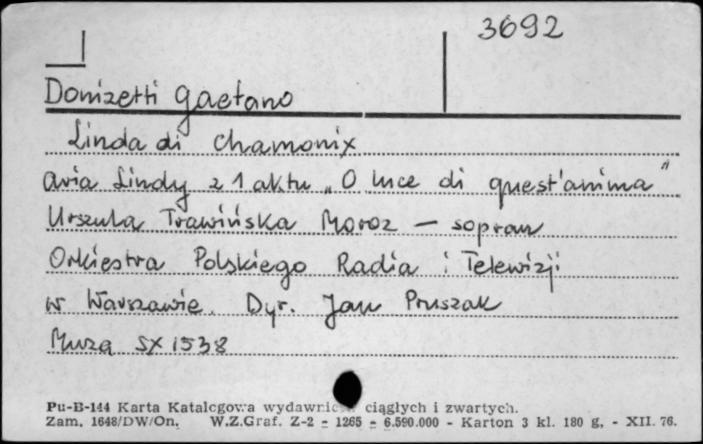 3692
Donizetti Gaetano
Linda di Chamonix
aria Lindy z 1 aktu „O luce di quest'anima"
Urszula Trawińska Moroz — sopran
Orkiestra Polskiego Radia i Telewizji
w Warszawie. Dyr. Jan Pruszak
Muza SX 1538
Pu-B-144 Karta Katalogowa wydawnictw ciągłych i zwartych.
Zam. 1648/DW/On. W.Z.Graf. Z-2 - 1265 - 6.590.000 - Karton 3 kl. 180 g. - XII. 76.